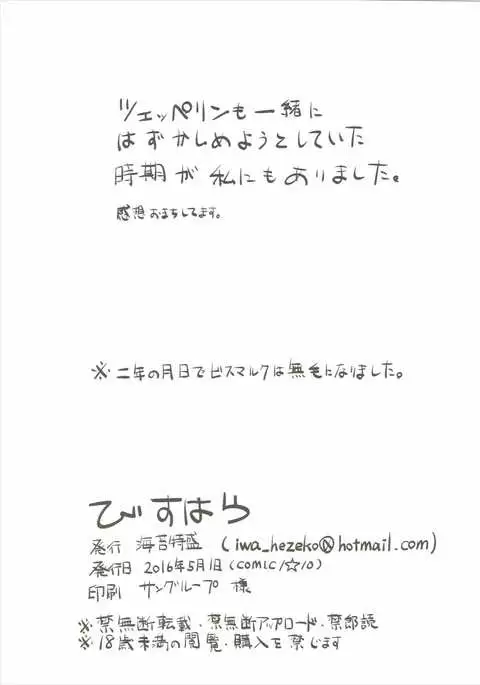 ツェッペリンも一緒に
はずかしめようとしていた
時期が私にもありました。
感想おまちしてます。
※二年の月日でビスマルクは無毛になりました。
びすはら
発行 海苔特盛 (iwa_hezeko@hotmail.com)
発行日 2016年5月1日(COMIC1☆10)
印刷 サングループ 様
※禁無断転載・禁無断アップロード・禁部読
※18歳未満の閲覧・購入を禁じます